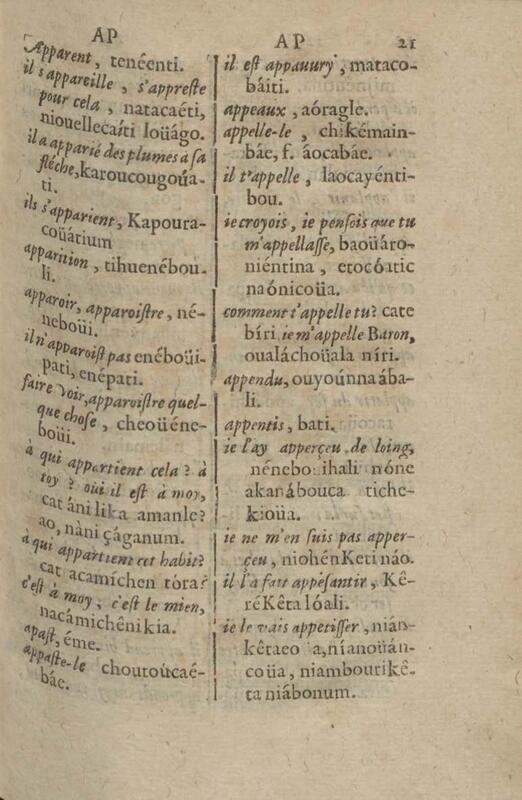 AP
Apparent, tenéenti.
il s'appareille, s'appreſte
pour cela, natacaéti,
niouellecaíti loüágo.
il a apparié des plumes à ſa
fléche, karoucougoúa-
ti.
ils s'apparient, Kapoura-
coüárium
apparition, tihuenébou-
li.
apparoir, apparoiſtre, né-
neboüi.
il n'apparoiſt pas enéboüi-
pati, enépati.
faire voir, apparoiſtre quel-
que choſe, cheoüéne-
boüi.
à qui appartient cela? à
toy? oui il est à moy,
cat áni lika amanle?
ao, nàni çáganum.
à qui appartient cet habit?
cat acamíchen tóra?
c'eſt à moy, c'eſt le mien,
nacámichênikia.
apaſt, éme.
appaſte-le choutoúcaé-
báe.
AP 21
il eſt appauury, mataco-
báiti.
appeaux, aóragle.
appelle-le, chikémain-
báe, f. áocabáe.
il t'appelle, laocayénti-
bou.
ie croyois, ie penſois que tu
m'appellaſſe, baoüáro-
niéntina, etocóatic
naónicoüa.
comment t'appelle tu? cate
bíri ie m'appelle Baron,
oualáchoüala níri.
appendu, ouyoúnnaába-
li.
appentis, bati.
ie l'ay apperçeu de loing,
nénebo ihali nóne
akanábouca tiche-
kioüa.
ie ne m'en ſuis pas apper-
çeu, niohénKetináo.
il l'a fait appéſantir, Kê-
réKêta lóali.
ie le vais appetiſſer, nián-
kêtaeo a, níanoüán-
coüa, niambourikê-
ta niábonum.